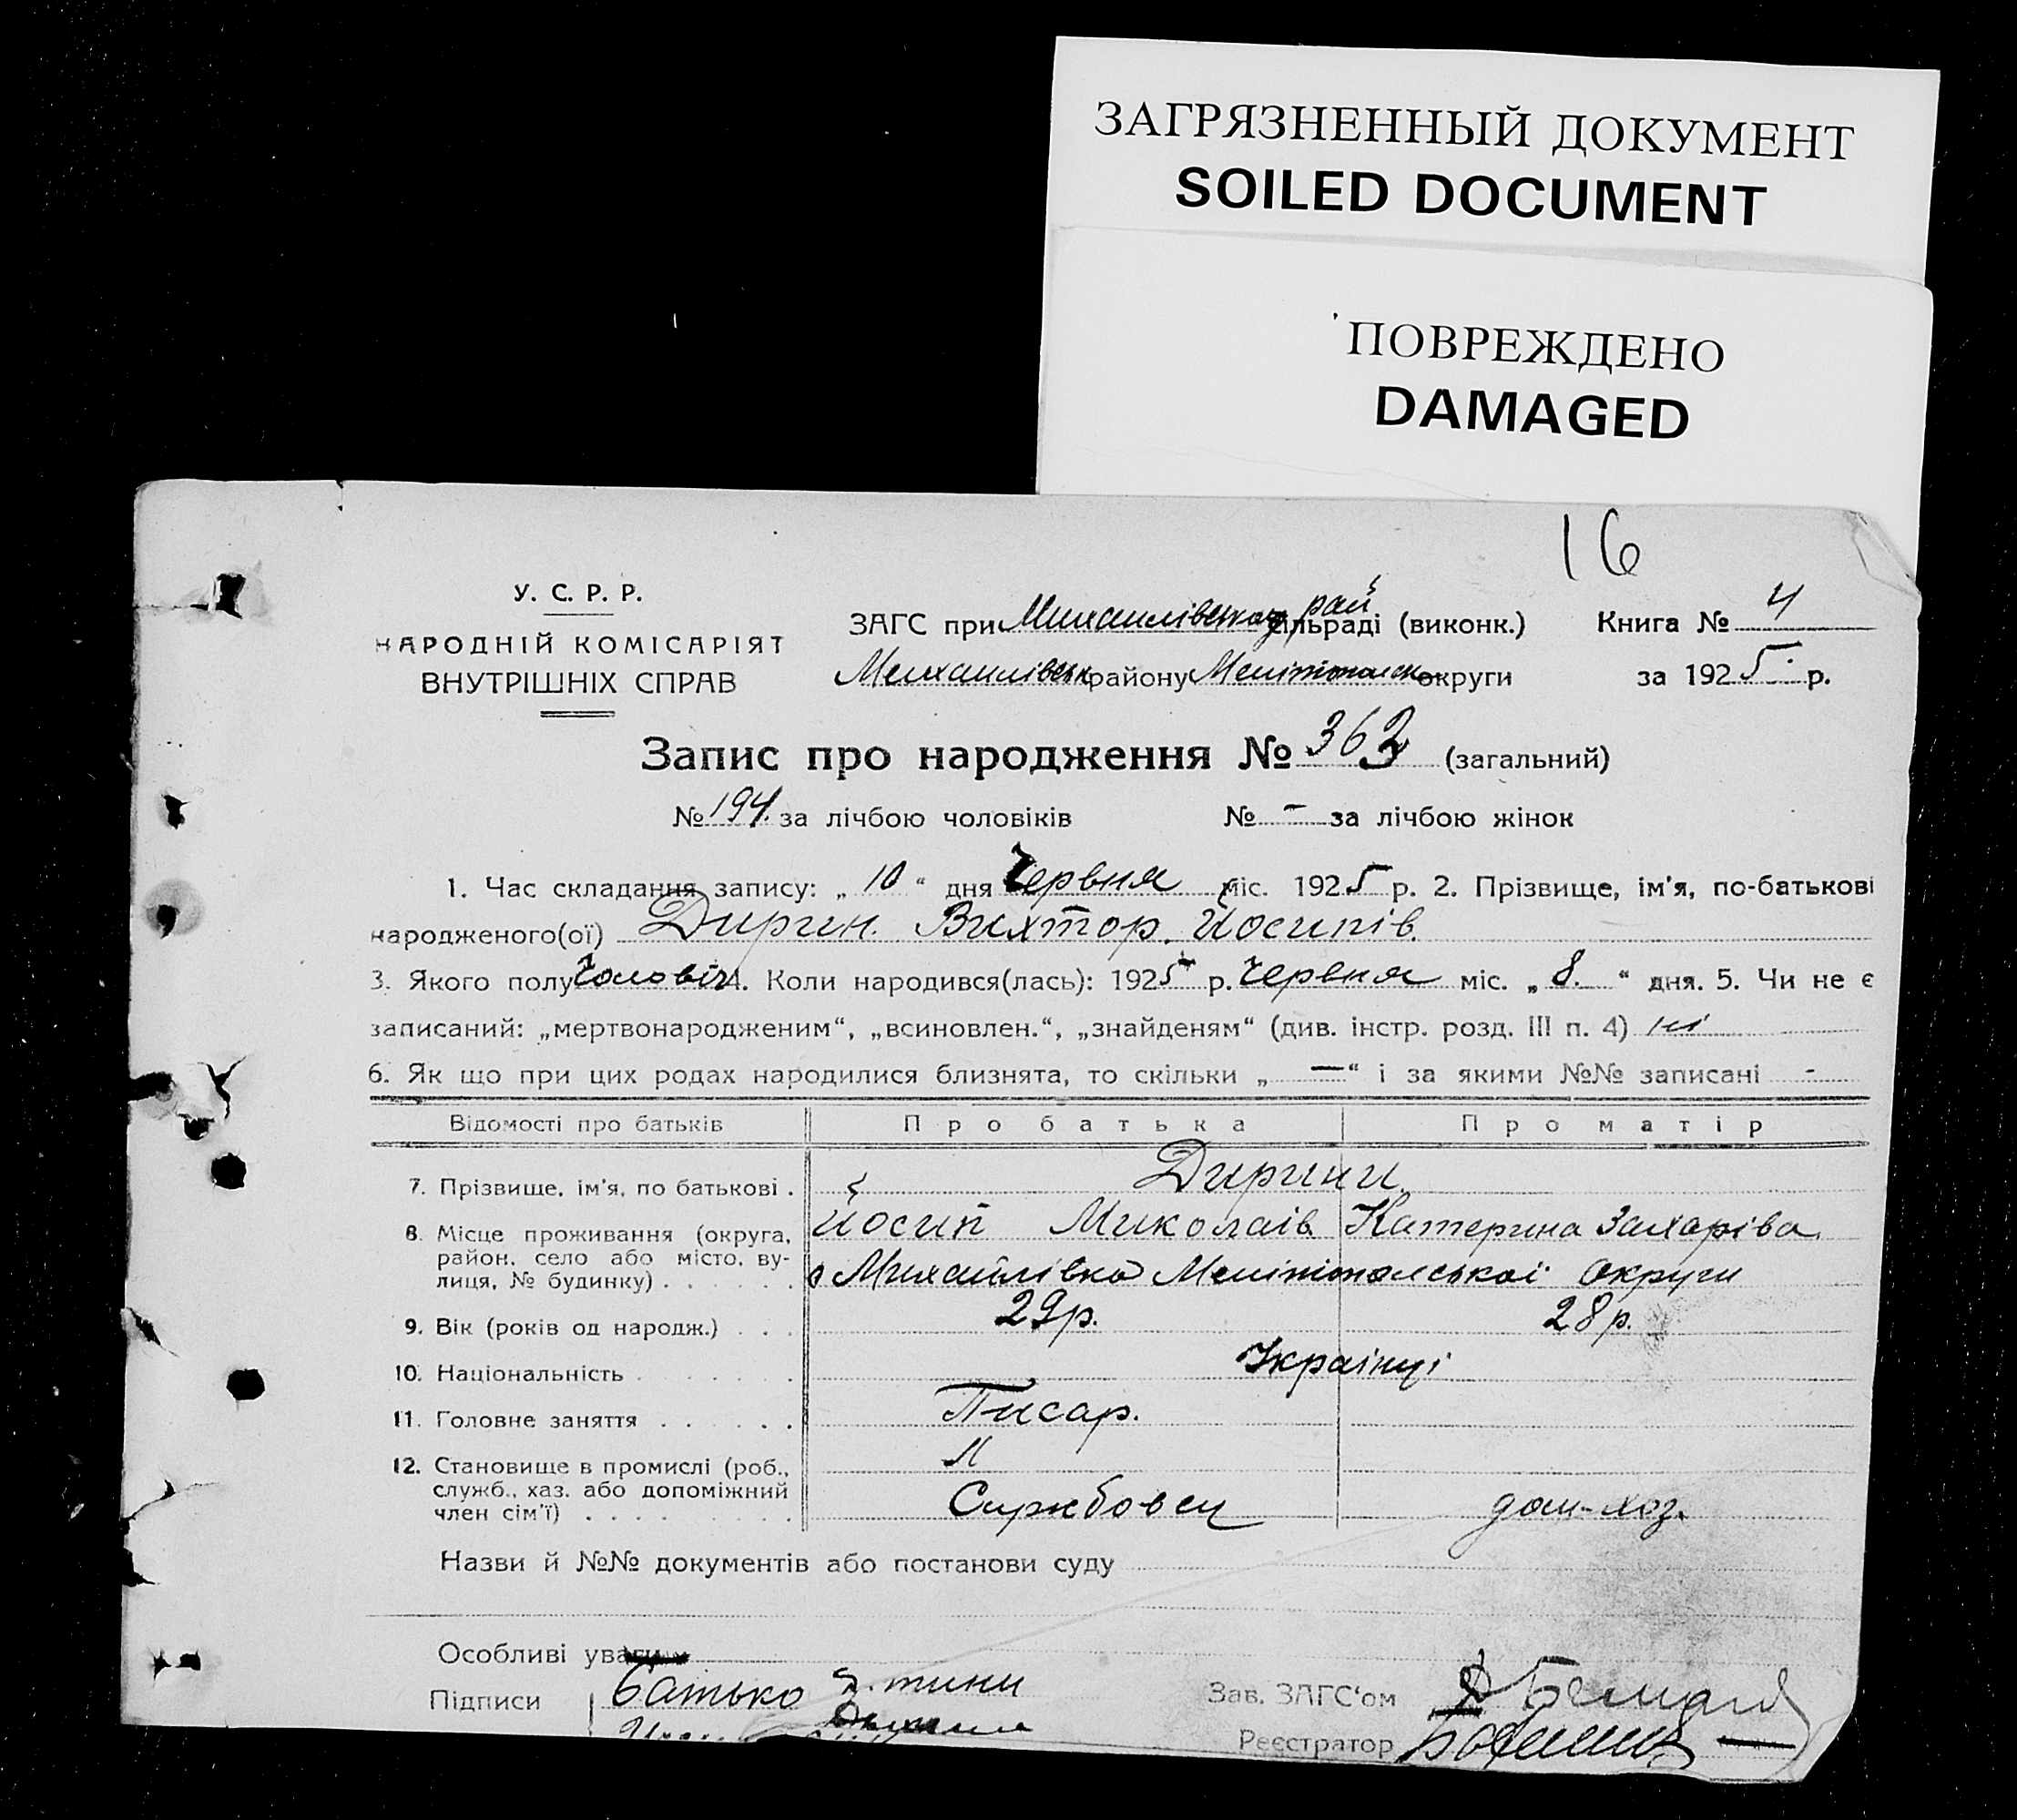 ЗАГРЯЗНЕННЫЙ ДОКУМЕНТ
SOILED DOCUMENT
ПОВРЕЖДЕНО
DAMAGED
16
У. С. Р. Р.
НАРОДНІЙ КОМІСАРІЯТ
ВНУТРІШНІХ СПРАВ
ЗАГС при Михайлівському рай сільраді (виконк.) Книга № 4
Михайлівськ району Мелітопольск округи за 1925 р.
Запис про народження № 362 (загальний)
№ 194. за лічбою чоловіків № - за лічбою жінок
1. Час складання запису: „ 10 “ дня Червня міс. 1925 р. 2. Прізвище, ім'я, по-батькові
народженого(ої) Дирин. Вихтор. Йосипів.
3. Якого полу Чоловіч 4. Коли народився(лась): 1925 р. Червня міс. „ 8. “ дня. 5. Чи не є
записаний: „мертвонародженим“, „всиновлен.“, „знайденям“ (див. інстр. розд. III п. 4) ні
6. Як що при цих родах народилися близнята, то скільки „ — “ і за якими №№ записані -
Відомості про батьків Про батька Про матір
7. Прізвище, ім'я, по батькові . Дирини
8. Місце проживання (округа, Йосип Миколаїв Катерина Захаріва
район, село або місто, ву-
лиця, № будинку) . . . . . . с Михайлівка Мелітопольської округи
9. Вік (років од народж.) . . . 29р. 28р.
10. Національність . . . . . . Українці
11. Головне заняття . . . . . . Писар.
12. Становище в промислі (роб.,
служб., хаз. або допоміжний
член сім'ї) . . . . . . . . Службовец дом-хоз.
Назви й №№ документів або постанови суду
Особливі уваги
Підписи Батько дитини Зав. ЗАГС'ом
Реєстратор